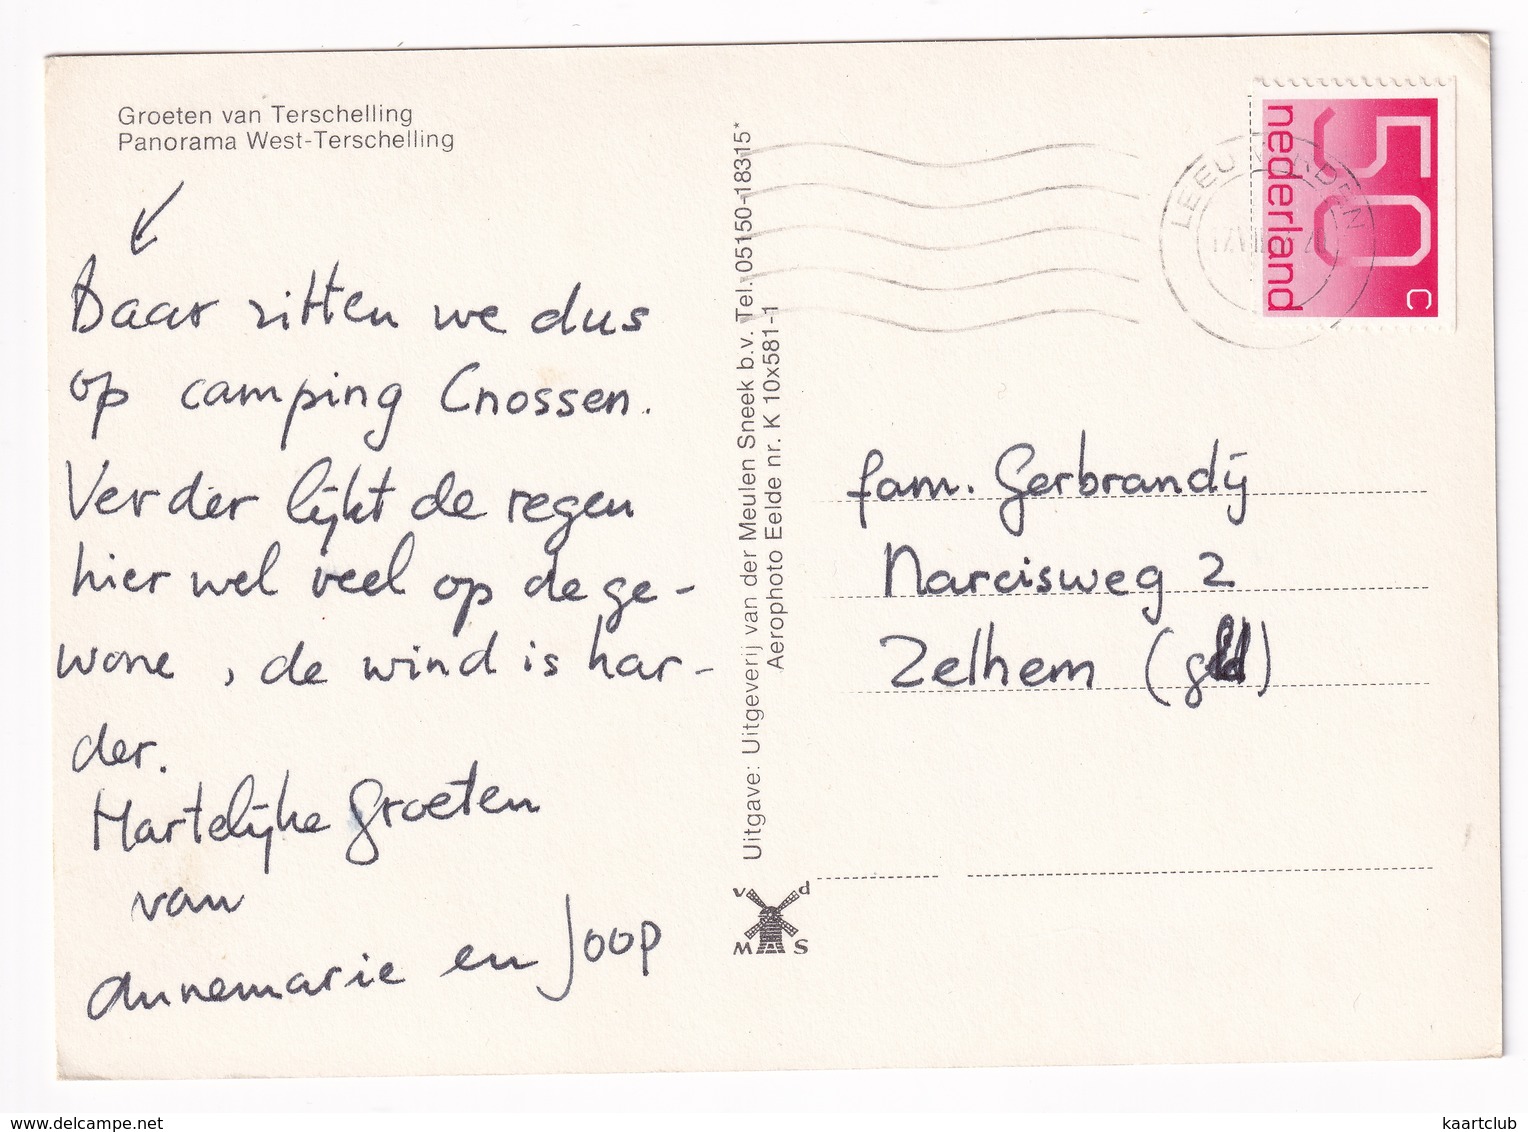 Groeten van Terschelling
Panorama West-Terschelling
Daar zitten we dus
op camping Cnossen.
Verder lijkt de regen
hier wel veel op de ge-
wone, de wind is har-
der.
Hartelijke Groeten
van
Annemarie en Joop
Uitgave: Uitgeverij van der Meulen Sneek b.v. Tel. 05150-18315*
Aerophoto Eelde nr. K 10x581-1
v d
M S
nederland
50 c
LEEUWARDEN
fam. Gerbrandij
Narcisweg 2
Zelhem (gld)
kaartclub